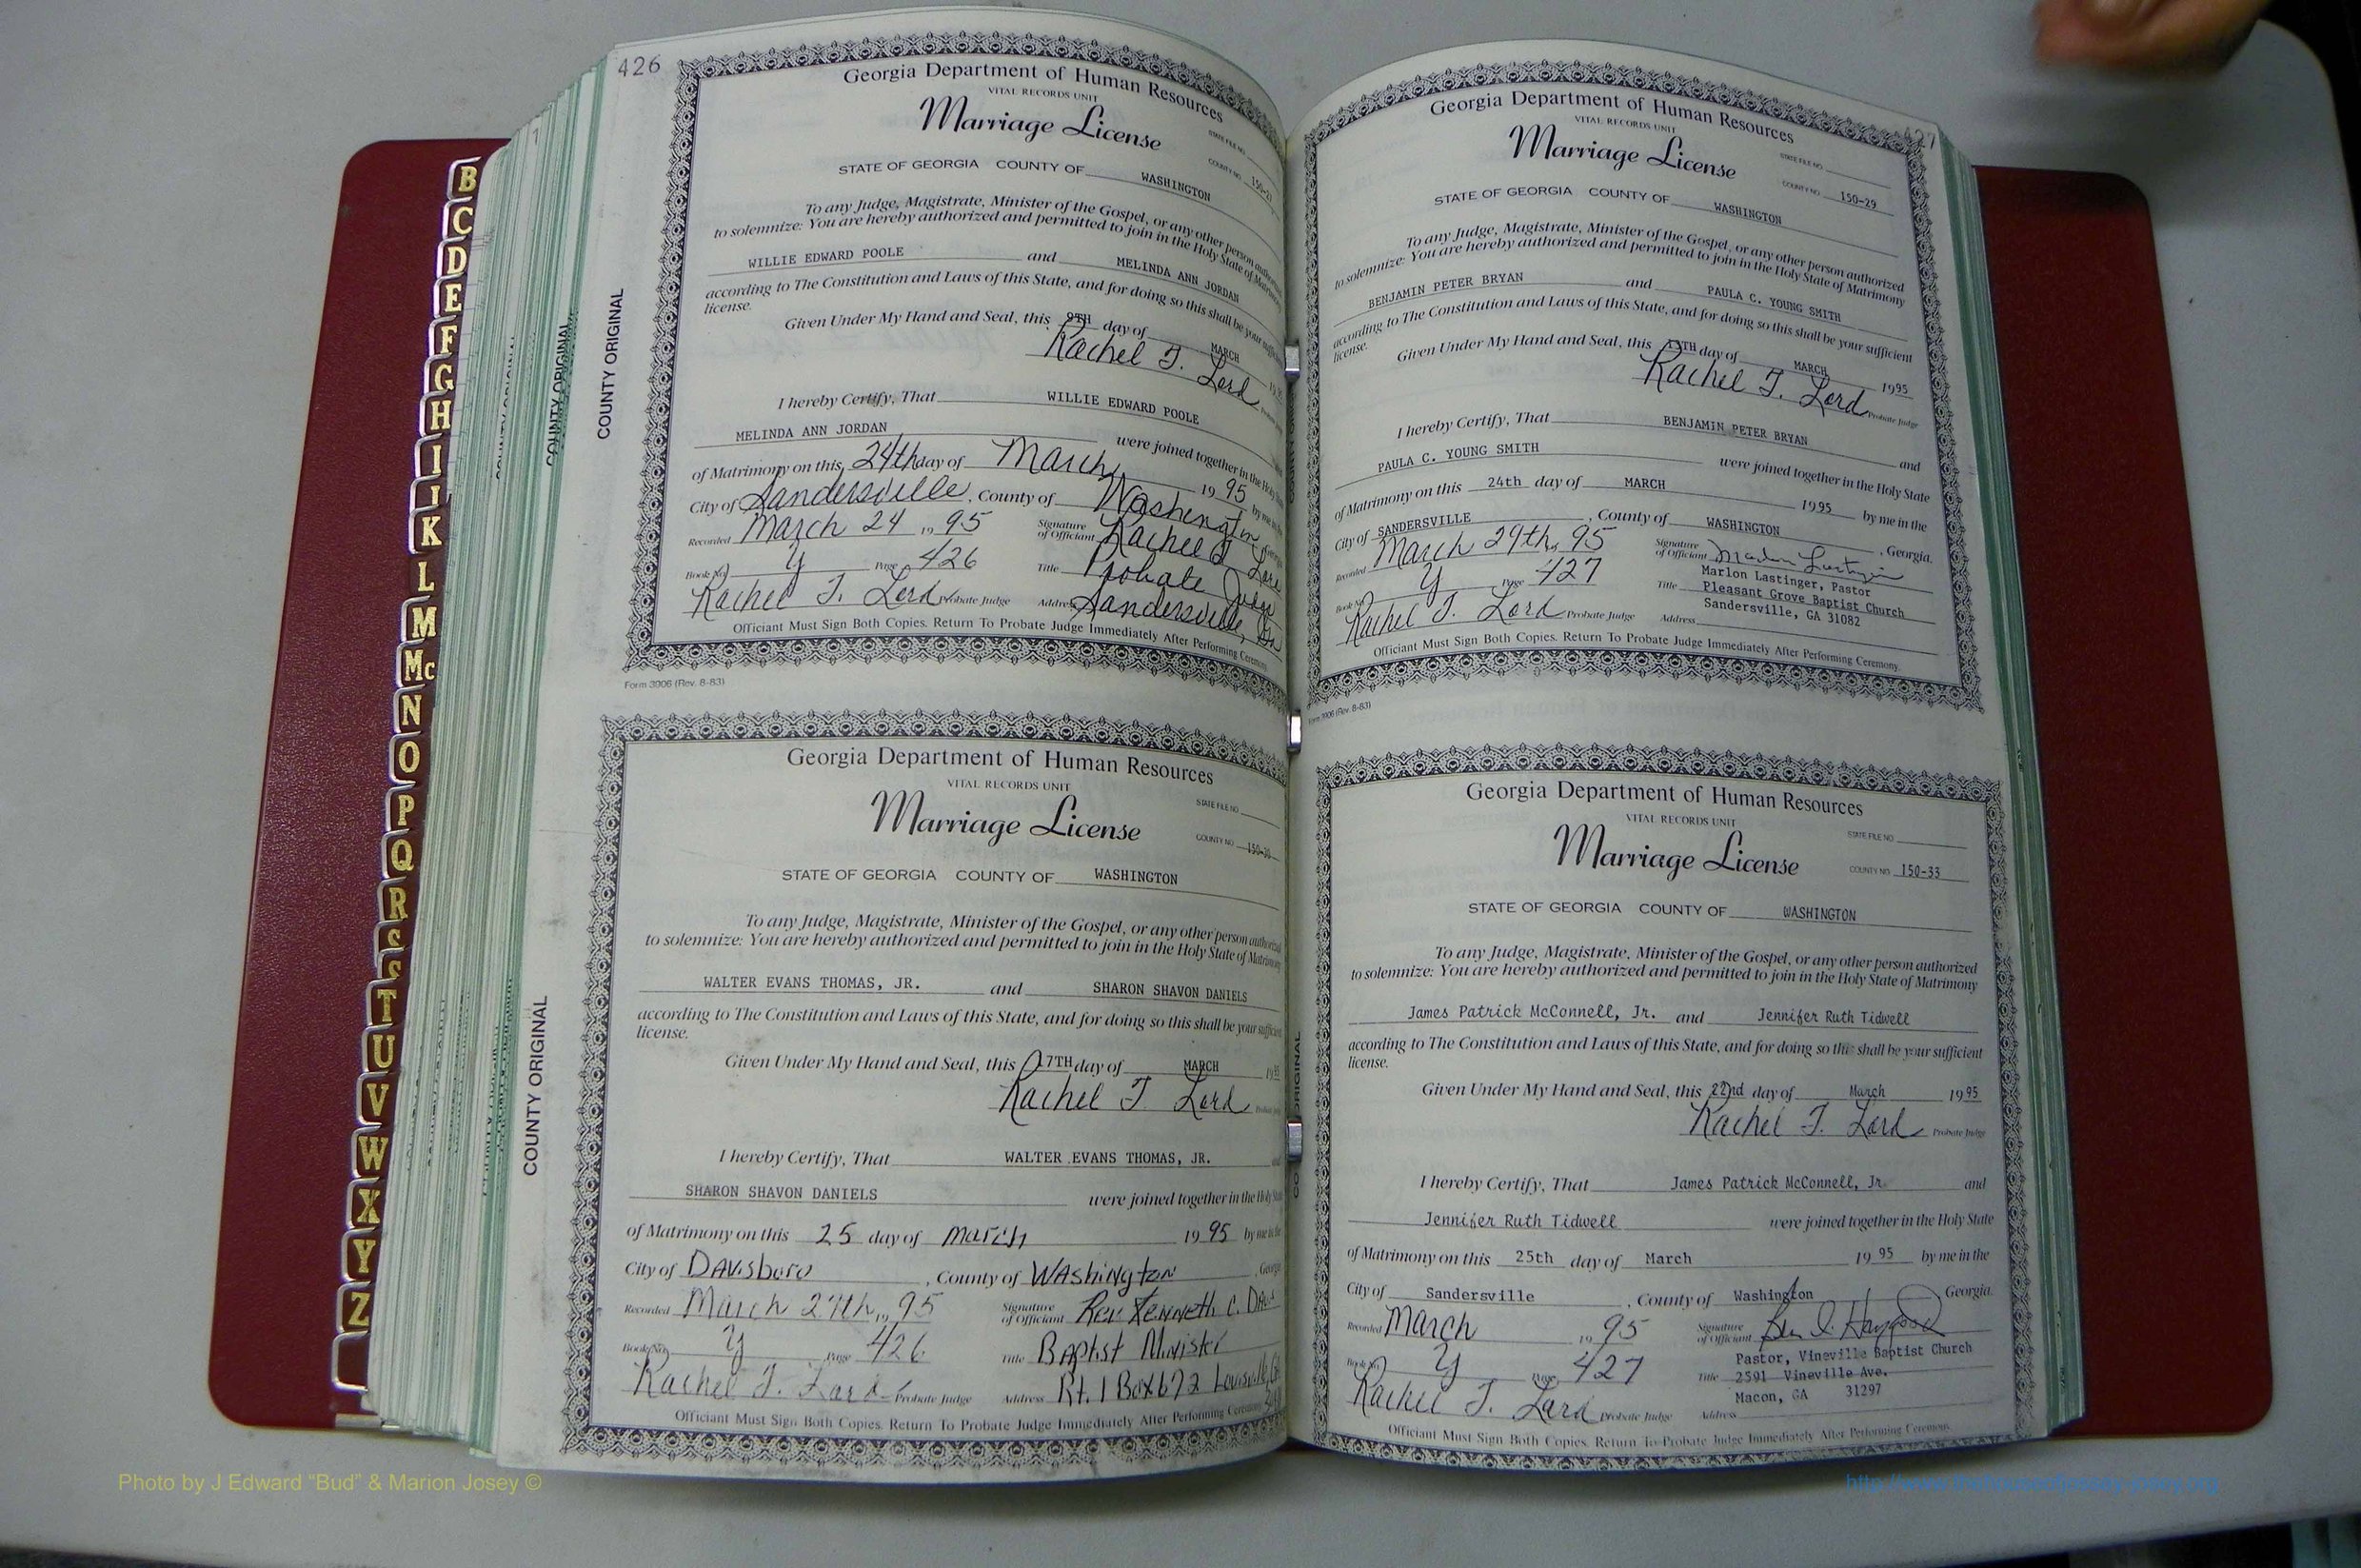 B
C
D
E
F
G
H
I
J
K
L
M
Mc
N
O
P
Q
R
S
S
T
U
V
W
X
Y
Z
426
COUNTY ORIGINAL
COUNTY ORIGINAL
Georgia Department of Human Resources
VITAL RECORDS UNIT
Marriage License
STATE FILE NO.
COUNTY NO. 150-27
STATE OF GEORGIA COUNTY OF WASHINGTON
To any Judge, Magistrate, Minister of the Gospel, or any other person authorized
to solemnize: You are hereby authorized and permitted to join in the Holy State of Matrimony
WILLIE EDWARD POOLE and MELINDA ANN JORDAN
according to The Constitution and Laws of this State, and for doing so this shall be your sufficient
license.
Given Under My Hand and Seal, this 9TH day of MARCH
Rachel T. Lord
I hereby Certify, That WILLIE EDWARD POOLE
MELINDA ANN JORDAN were joined together in the Holy
of Matrimony on this 24th day of March 1995 by me in the
City of Sandersville, County of Washington
Recorded March 24, 1995 Signature of Officiant Rachel T. Lord
Book No. Y Page 426 Title Probate Judge
Rachel T. Lord Probate Judge Address Sandersville, Ga
Officiant Must Sign Both Copies. Return To Probate Judge Immediately After Performing Ceremony.
Form 3906 (Rev. 8-83)
COUNTY ORIGINAL
Georgia Department of Human Resources
VITAL RECORDS UNIT
Marriage License
STATE FILE NO.
COUNTY NO. 150-30
STATE OF GEORGIA COUNTY OF WASHINGTON
To any Judge, Magistrate, Minister of the Gospel, or any other person authorized
to solemnize: You are hereby authorized and permitted to join in the Holy State of Matrimony
WALTER EVANS THOMAS, JR. and SHARON SHAVON DANIELS
according to The Constitution and Laws of this State, and for doing so this shall be your sufficient
license.
Given Under My Hand and Seal, this 17TH day of MARCH 1995
Rachel T. Lord
I hereby Certify, That WALTER EVANS THOMAS, JR. and
SHARON SHAVON DANIELS were joined together in the Holy State
of Matrimony on this 25 day of March 1995 by me in the
City of Davisboro, County of Washington, Georgia
Recorded March 27th, 1995 Signature of Officiant Rev. Kenneth C. Davis
Book No. Y Page 426 Title Baptist Minister
Rachel T. Lord Probate Judge Address Rt. 1 Box 672 Louisville, Ga
Officiant Must Sign Both Copies. Return To Probate Judge Immediately After Performing Ceremony.
427
Georgia Department of Human Resources
VITAL RECORDS UNIT
Marriage License
STATE FILE NO.
COUNTY NO. 150-29
STATE OF GEORGIA COUNTY OF WASHINGTON
To any Judge, Magistrate, Minister of the Gospel, or any other person authorized
to solemnize: You are hereby authorized and permitted to join in the Holy State of Matrimony
BENJAMIN PETER BRYAN and PAULA C. YOUNG SMITH
according to The Constitution and Laws of this State, and for doing so this shall be your sufficient
license.
Given Under My Hand and Seal, this 13TH day of MARCH 1995
Rachel T. Lord Probate Judge
I hereby Certify, That BENJAMIN PETER BRYAN and
PAULA C. YOUNG SMITH were joined together in the Holy State
of Matrimony on this 24th day of MARCH 1995 by me in the
City of SANDERSVILLE, County of WASHINGTON, Georgia.
Recorded March 29th, 95 Signature of Officiant Marlon Lastinger
Marlon Lastinger, Pastor
Book No. Y Page 427 Title Pleasant Grove Baptist Church
Sandersville, GA 31082
Rachel T. Lord Probate Judge Address
Officiant Must Sign Both Copies. Return To Probate Judge Immediately After Performing Ceremony.
Form 3906 (Rev. 8-83)
Georgia Department of Human Resources
VITAL RECORDS UNIT
Marriage License
STATE FILE NO.
COUNTY NO. 150-33
STATE OF GEORGIA COUNTY OF WASHINGTON
To any Judge, Magistrate, Minister of the Gospel, or any other person authorized
to solemnize: You are hereby authorized and permitted to join in the Holy State of Matrimony
James Patrick McConnell, Jr. and Jennifer Ruth Tidwell
according to The Constitution and Laws of this State, and for doing so this shall be your sufficient
license.
Given Under My Hand and Seal, this 22nd day of March 1995
Rachel T. Lord Probate Judge
I hereby Certify, That James Patrick McConnell, Jr. and
Jennifer Ruth Tidwell were joined together in the Holy State
of Matrimony on this 25th day of March 1995 by me in the
City of Sandersville, County of Washington Georgia.
Recorded March 1995 Signature of Officiant
Pastor, Vineville Baptist Church
Book No. Y Page 427 Title 2591 Vineville Ave.
Macon, GA 31297
Rachel T. Lord Probate Judge Address
Officiant Must Sign Both Copies. Return To Probate Judge Immediately After Performing Ceremony.
Photo by J Edward “Bud” & Marion Josey ©